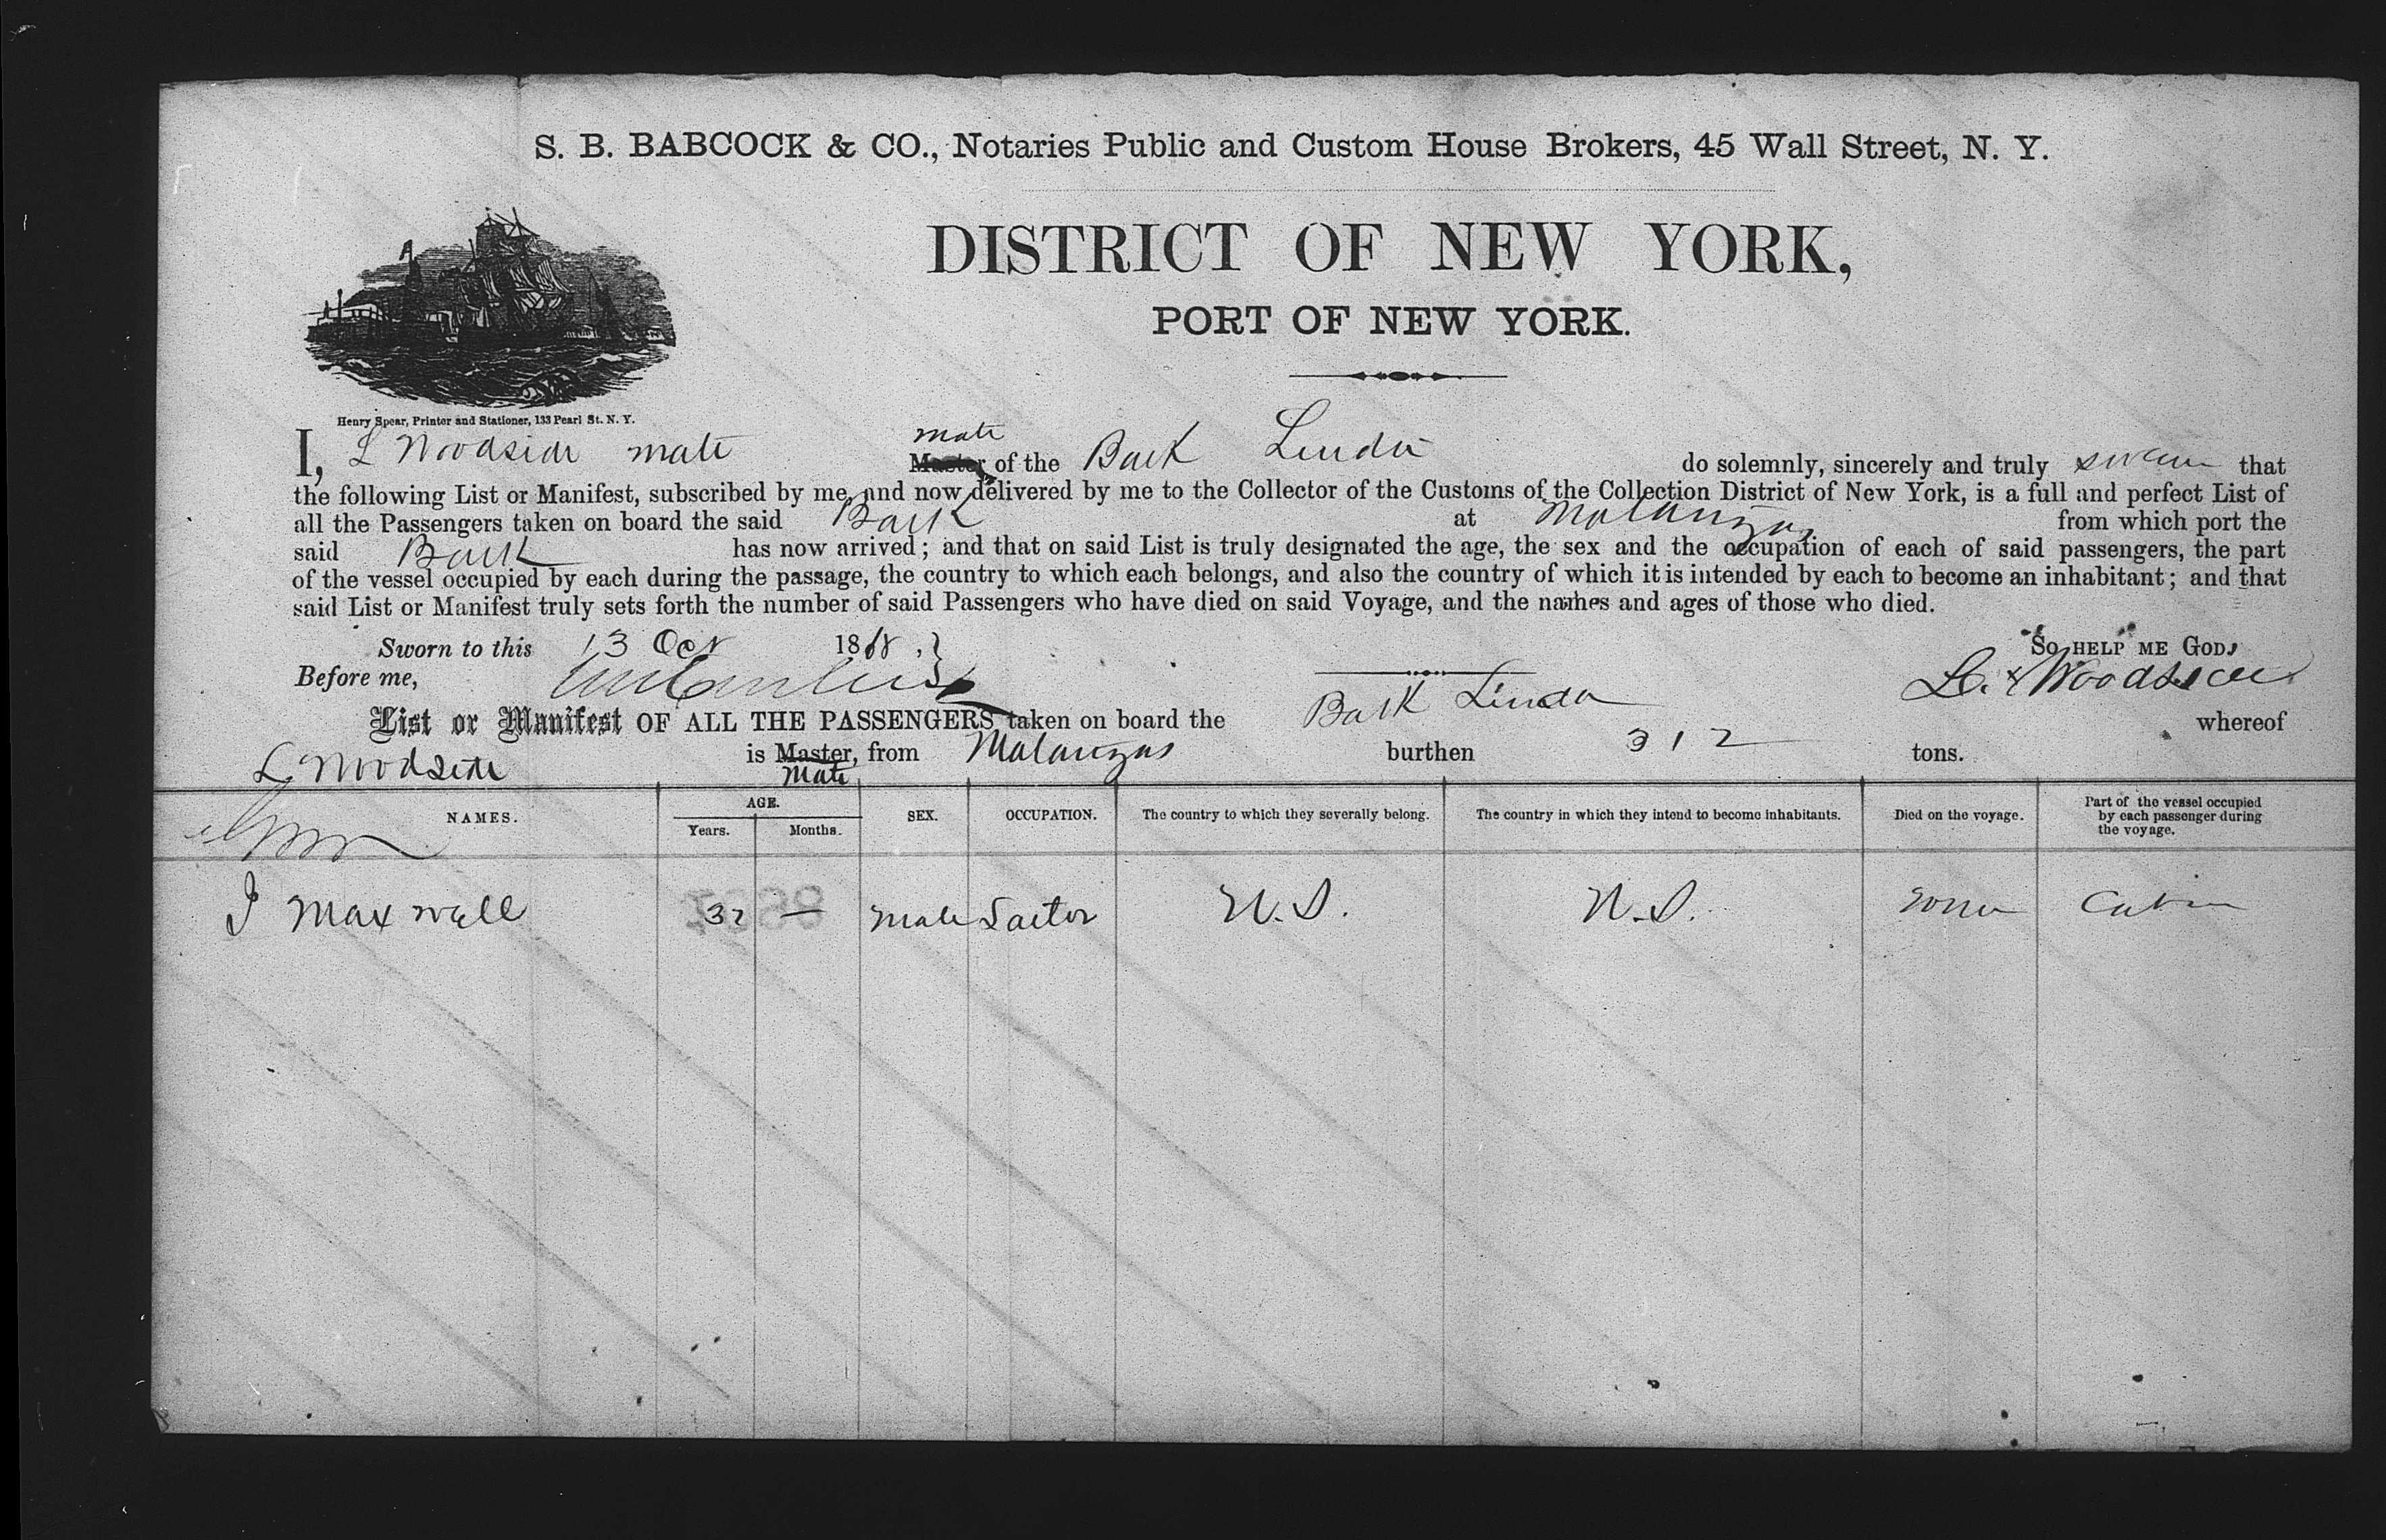 S. B. BABCOCK & CO., Notaries Public and Custom House Brokers, 45 Wall Street, N. Y.
DISTRICT OF NEW YORK,
PORT OF NEW YORK.
Henry Spear, Printer and Stationer, 133 Pearl St. N. Y.
mate
I, L Woodside mate Master of the Bark Linda do solemnly, sincerely and truly swear that
the following List or Manifest, subscribed by me, and now delivered by me to the Collector of the Customs of the Collection District of New York, is a full and perfect List of
all the Passengers taken on board the said Bark at Matanzas from which port the
said Bark has now arrived; and that on said List is truly designated the age, the sex and the occupation of each of said passengers, the part
of the vessel occupied by each during the passage, the country to which each belongs, and also the country of which it is intended by each to become an inhabitant; and that
said List or Manifest truly sets forth the number of said Passengers who have died on said Voyage, and the names and ages of those who died.
Sworn to this 13 Oct 1868, SO HELP ME GOD,
Before me, L. Woodside
List or Manifest OF ALL THE PASSENGERS taken on board the Bark Linda whereof
L. Woodside is Master, from Matanzas burthen 312 tons.
Mate
NAMES. AGE. Years. Months. SEX. OCCUPATION. The country to which they severally belong. The country in which they intend to become inhabitants. Died on the voyage. Part of the vessel occupied by each passenger during the voyage.
J Maxwell 32 — Male U.S. U.S. none Cabin